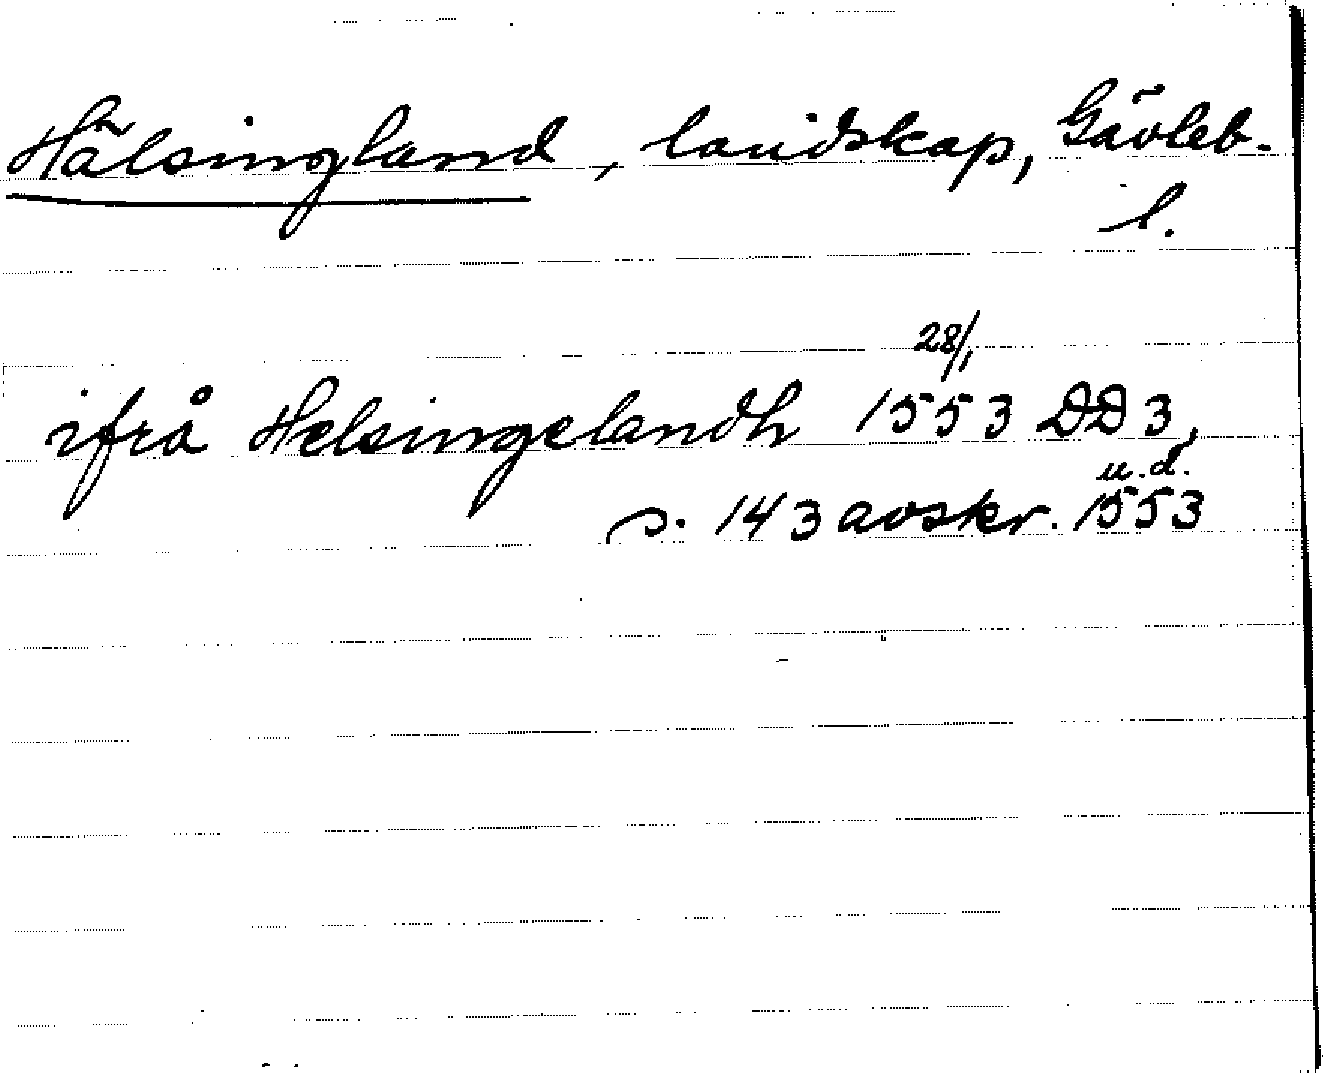 Hälsingland, landskap, Gävleb.
l.
28/1
ifrå Helsingelandh 1553 DD3,
u.d.
s. 143 avskr. 1553